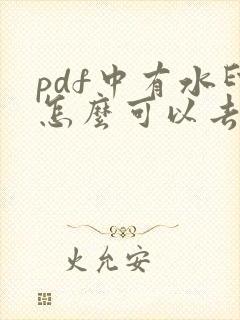 pdf中有水
怎麼可以去
火允安